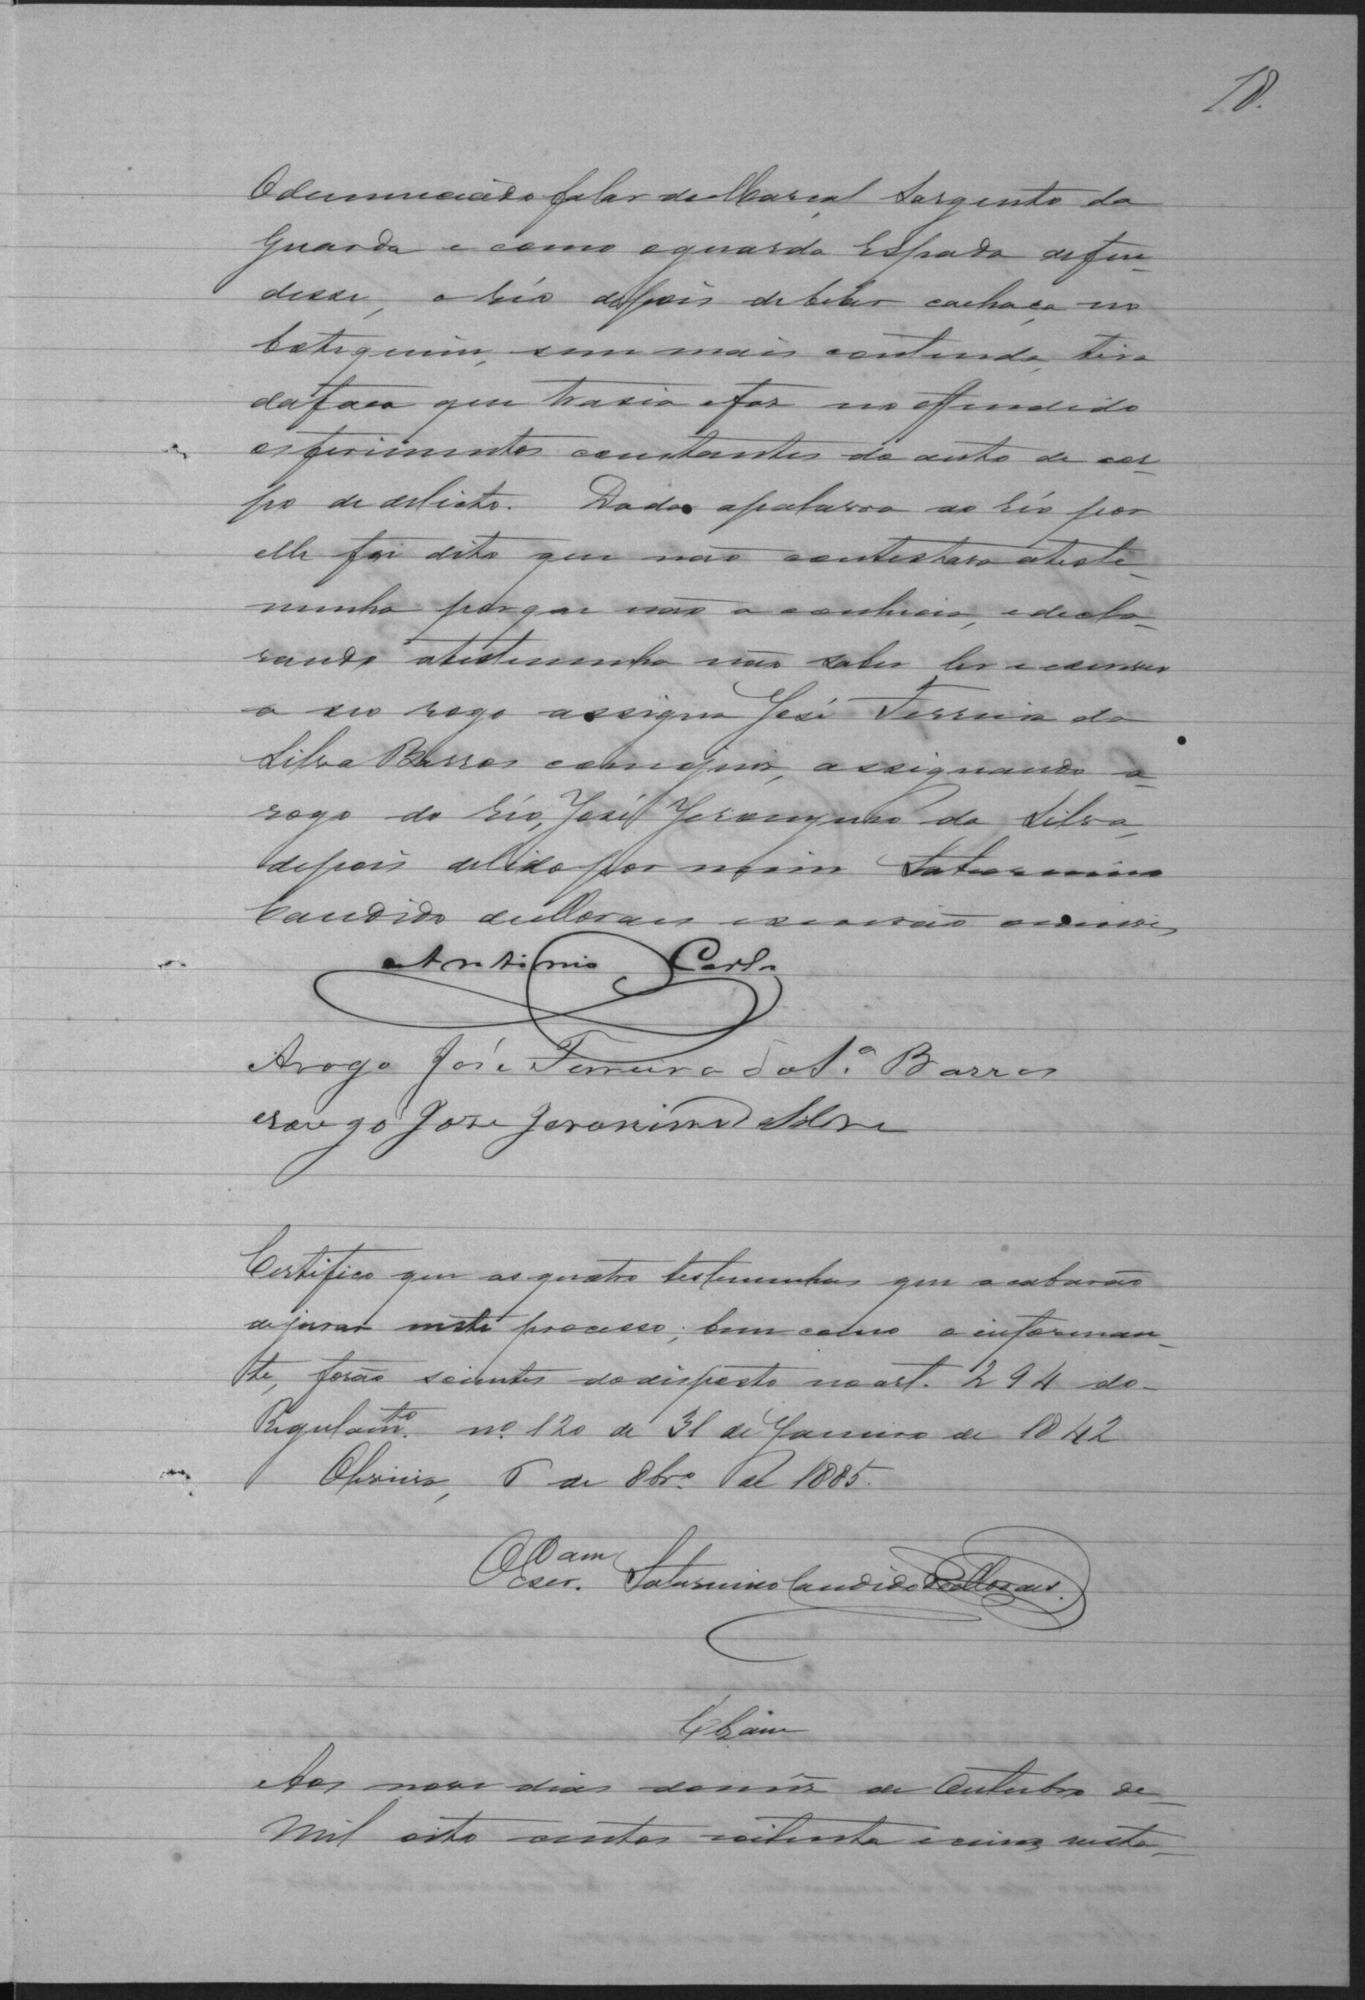 18.
O denunciado falar de Marçal Sargento da
Guarda e como o guarda Espada defen-
desse, o réo depois de beber cachaça no
botequim, sem mais contenda, tira
da faca que trasia e faz no offendido
os ferimentos constantes do auto de cor-
po de delicto. Dada a palavra ao réo por
elle foi dito que não contestava a teste-
munha porque não a conhecia, e decla-
rando a testemunha não saber ler e escrever
a seu rogo assigna José Ferreira da
Silva Barros com o juiz, assignando a
rogo do réo, José Jeronymo da Silva,
depois de lido por mim Saturnino
Candido de Moraes escrivão o escrevi
Antonio Carlo
Arogo José Ferreira da S.ª Barros
arogo José Jeronimo da Silva
Certifico que as quatro testemunhas que acabarão
de jurar neste processo, bem como o informan-
te, forão scientes do disposto no art. 294 do
Regulamto. nº 120 de 31 de Janeiro de 1842
6 de 8br.º de 1885.
O Escr. Saturnino Candido de Moraes.
Aos nove dias do mez de Outubro de
Mil oito centos oitenta e cinco nesta